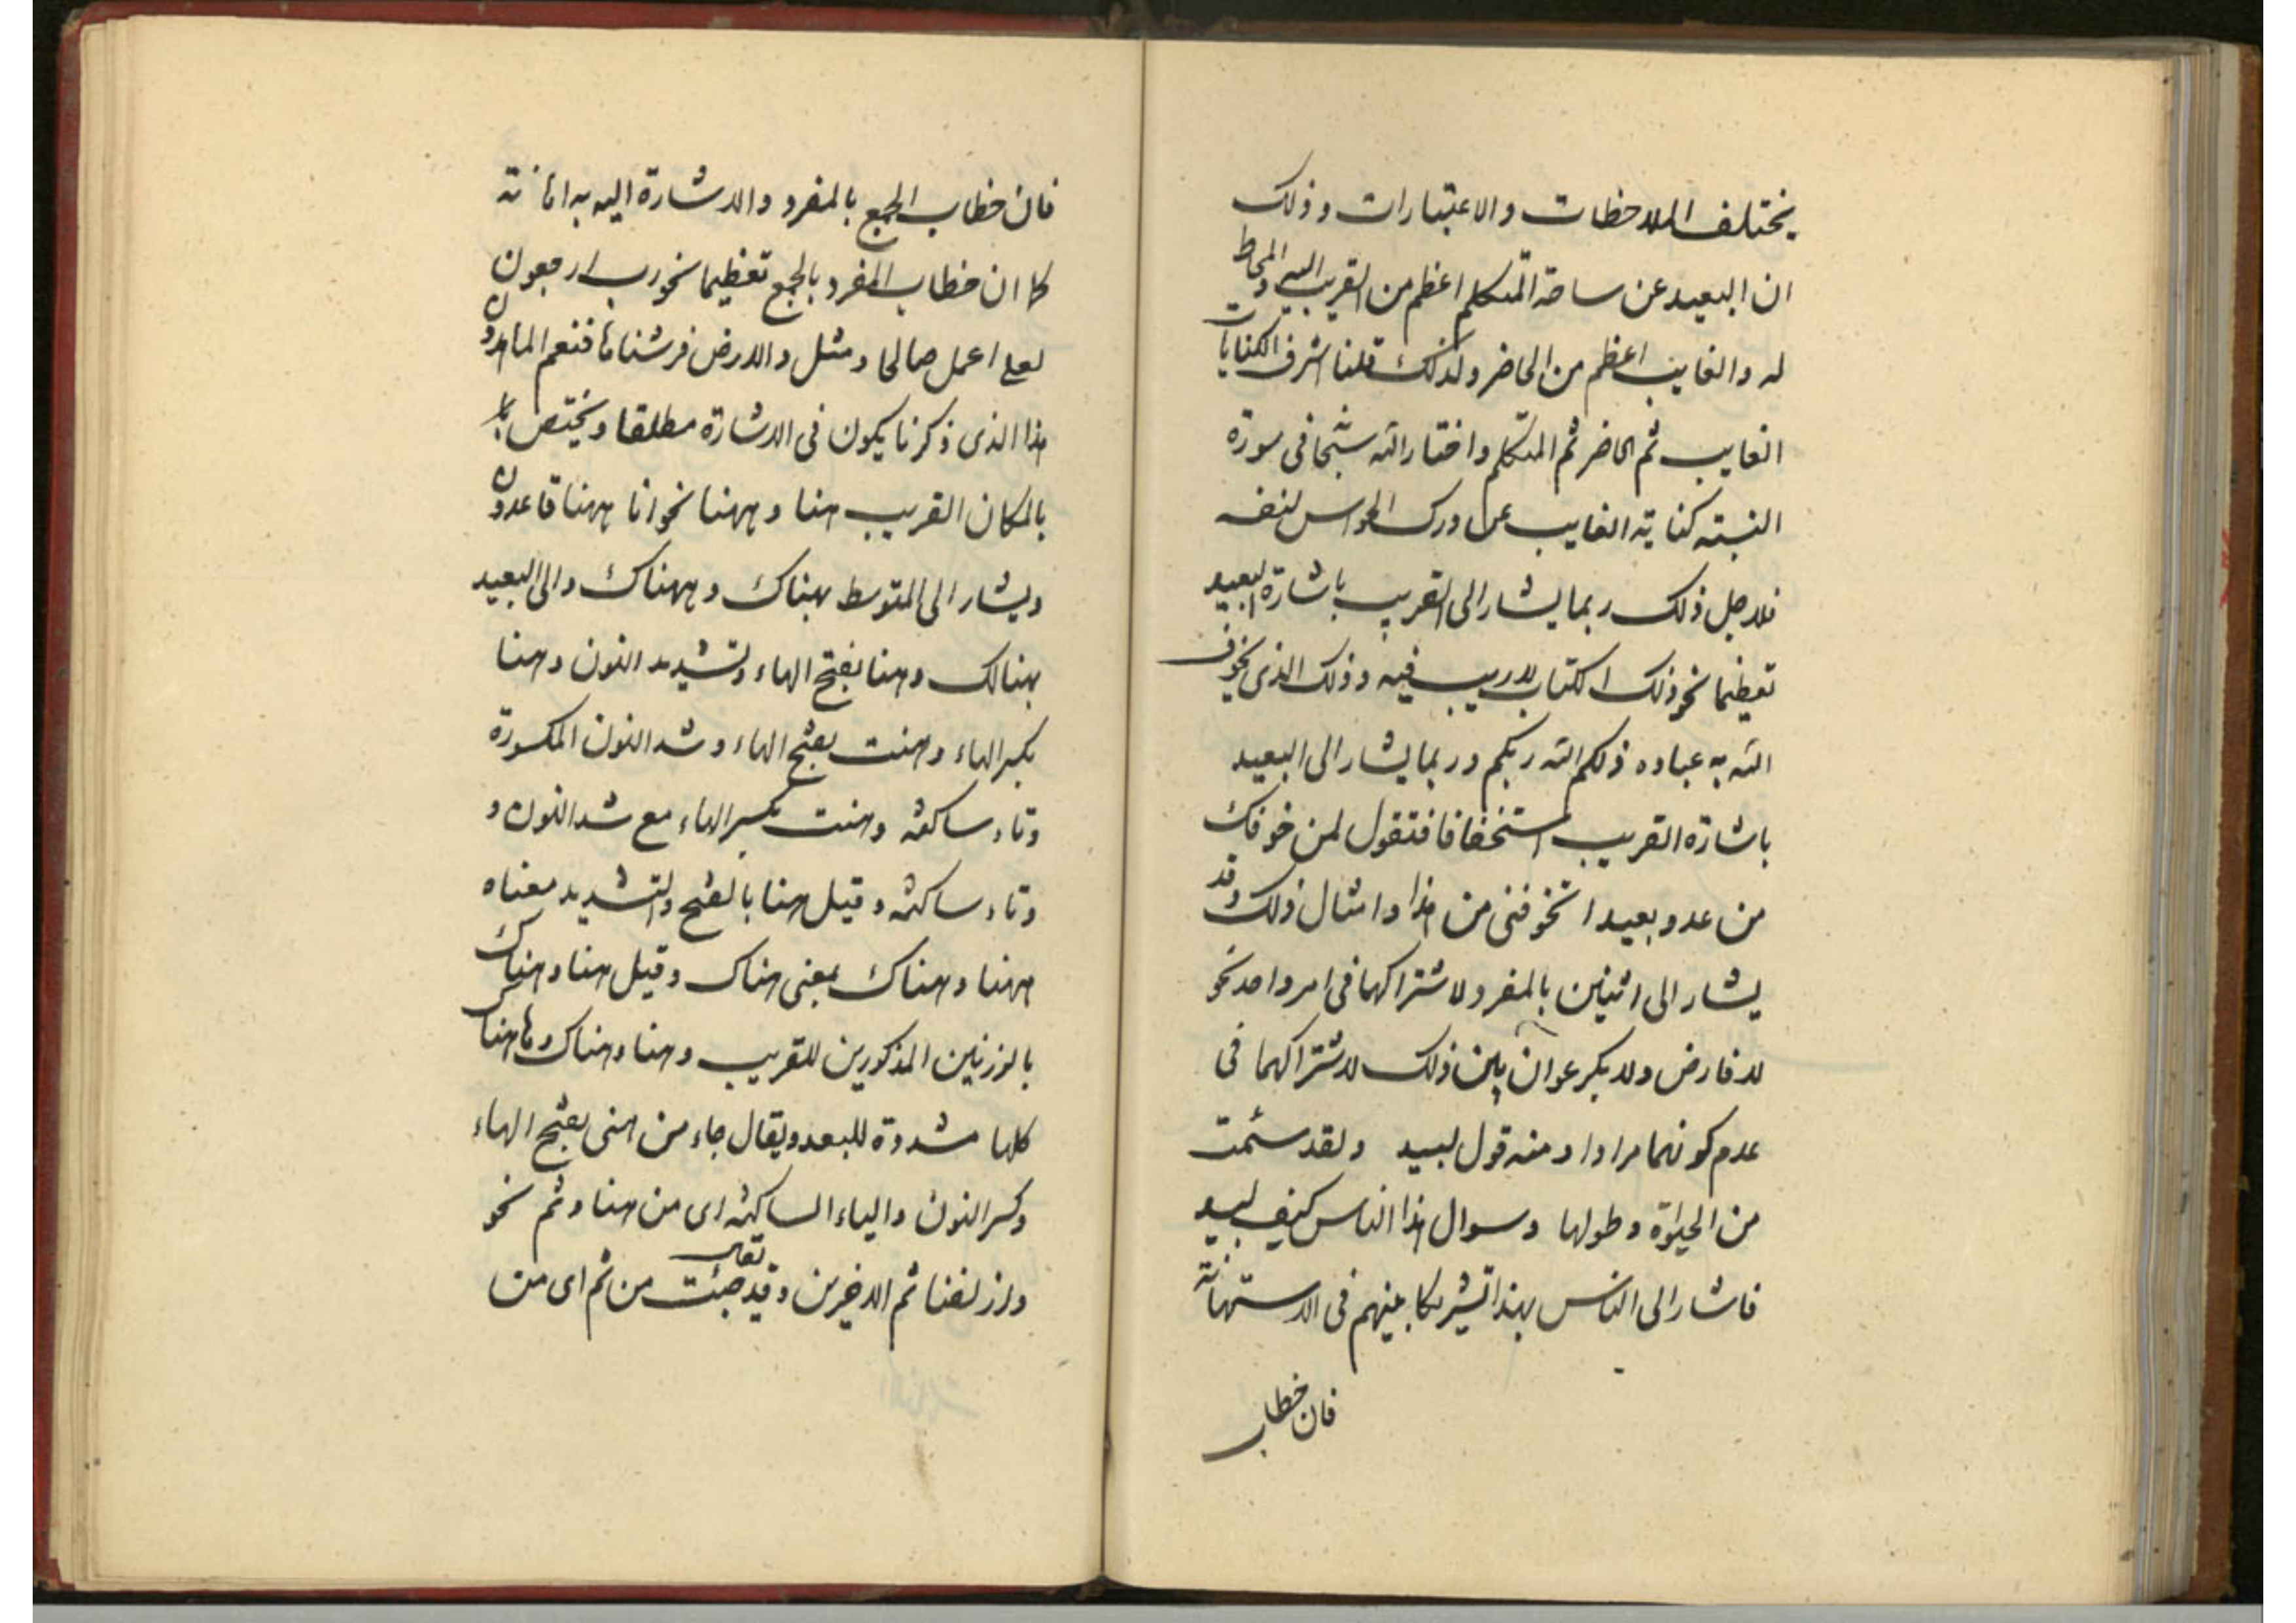 يختلف الملاحظات والاعتبارات وذلك
ان البعيد عن ساحة المتكلم اعظم من القريب اليه والمحاط
له والغايب اعظم من الحاضر ولذلك قلنا اشرف الكنايات
الغايب ثم الحاضر ثم المتكلم واختار الله سبحانه فى سورة
النسبة كناية الغايب عن درك الحواس لنفسه
فلاجل ذلك ربما يشار الى القريب باشارة البعيد
تعظيما نحو ذلك الكتاب لاريب فيه وذلك الذى يخوف
الله به عباده ذلكم الله ربكم وربما يشار الى البعيد
باشارة القريب استخفافا فتقول لمن خوفك
من عدو بعيد اتخوفنى من هذا وامثال ذلك وقد
يشار الى اثنين بالمفرد لاشتراكهما فى امر واحد نحو
لا فارض ولا بكر عوان بين ذلك لاشتراكهما فى
عدم كونهما مرادا ومنه قول لبيد ولقد سئمت
من الحيوة وطولها وسوال هذا الناس كيف لبيد
فاشار الى الناس بهذا تشريكا بينهم فى الاستهانة
فان خطاب
فان خطاب الجمع بالمفرد والاشارة اليه به اهانة
كما ان خطاب المفرد بالجمع تعظيما نحو رب ارجعون
لعلى اعمل صالحا ومثل والارض فرشناها فنعم الماهدون
هذا الذى ذكرنا يكون فى الاشارة مطلقا ويختص
بالمكان القريب هنا وههنا نحو انا ههنا قاعدون
ويشار الى المتوسط بهناك وههناك والى البعيد
بهنالك وهنا بفتح الهاء وتشديد النون وهنا
بكسر الهاء وهنت بفتح الهاء وشد النون المكسورة
وتاء ساكنة وهنت بكسر الهاء مع شد النون و
وتاء ساكنة وقيل هنا بالفتح والتشديد معناه
ههنا وهناك بمعنى هناك وقيل هنا وهناك
بالوزنين المذكورين للقريب وهنا وهناك وهاهناك
كلها مشددة للبعد ويقال جاء من هنى بفتح الهاء
وكسر النون والياء الساكنة اى من هنا وثم نحو
وازلفنا ثم الاخرين وقد تقلب جئت من ثم اى من